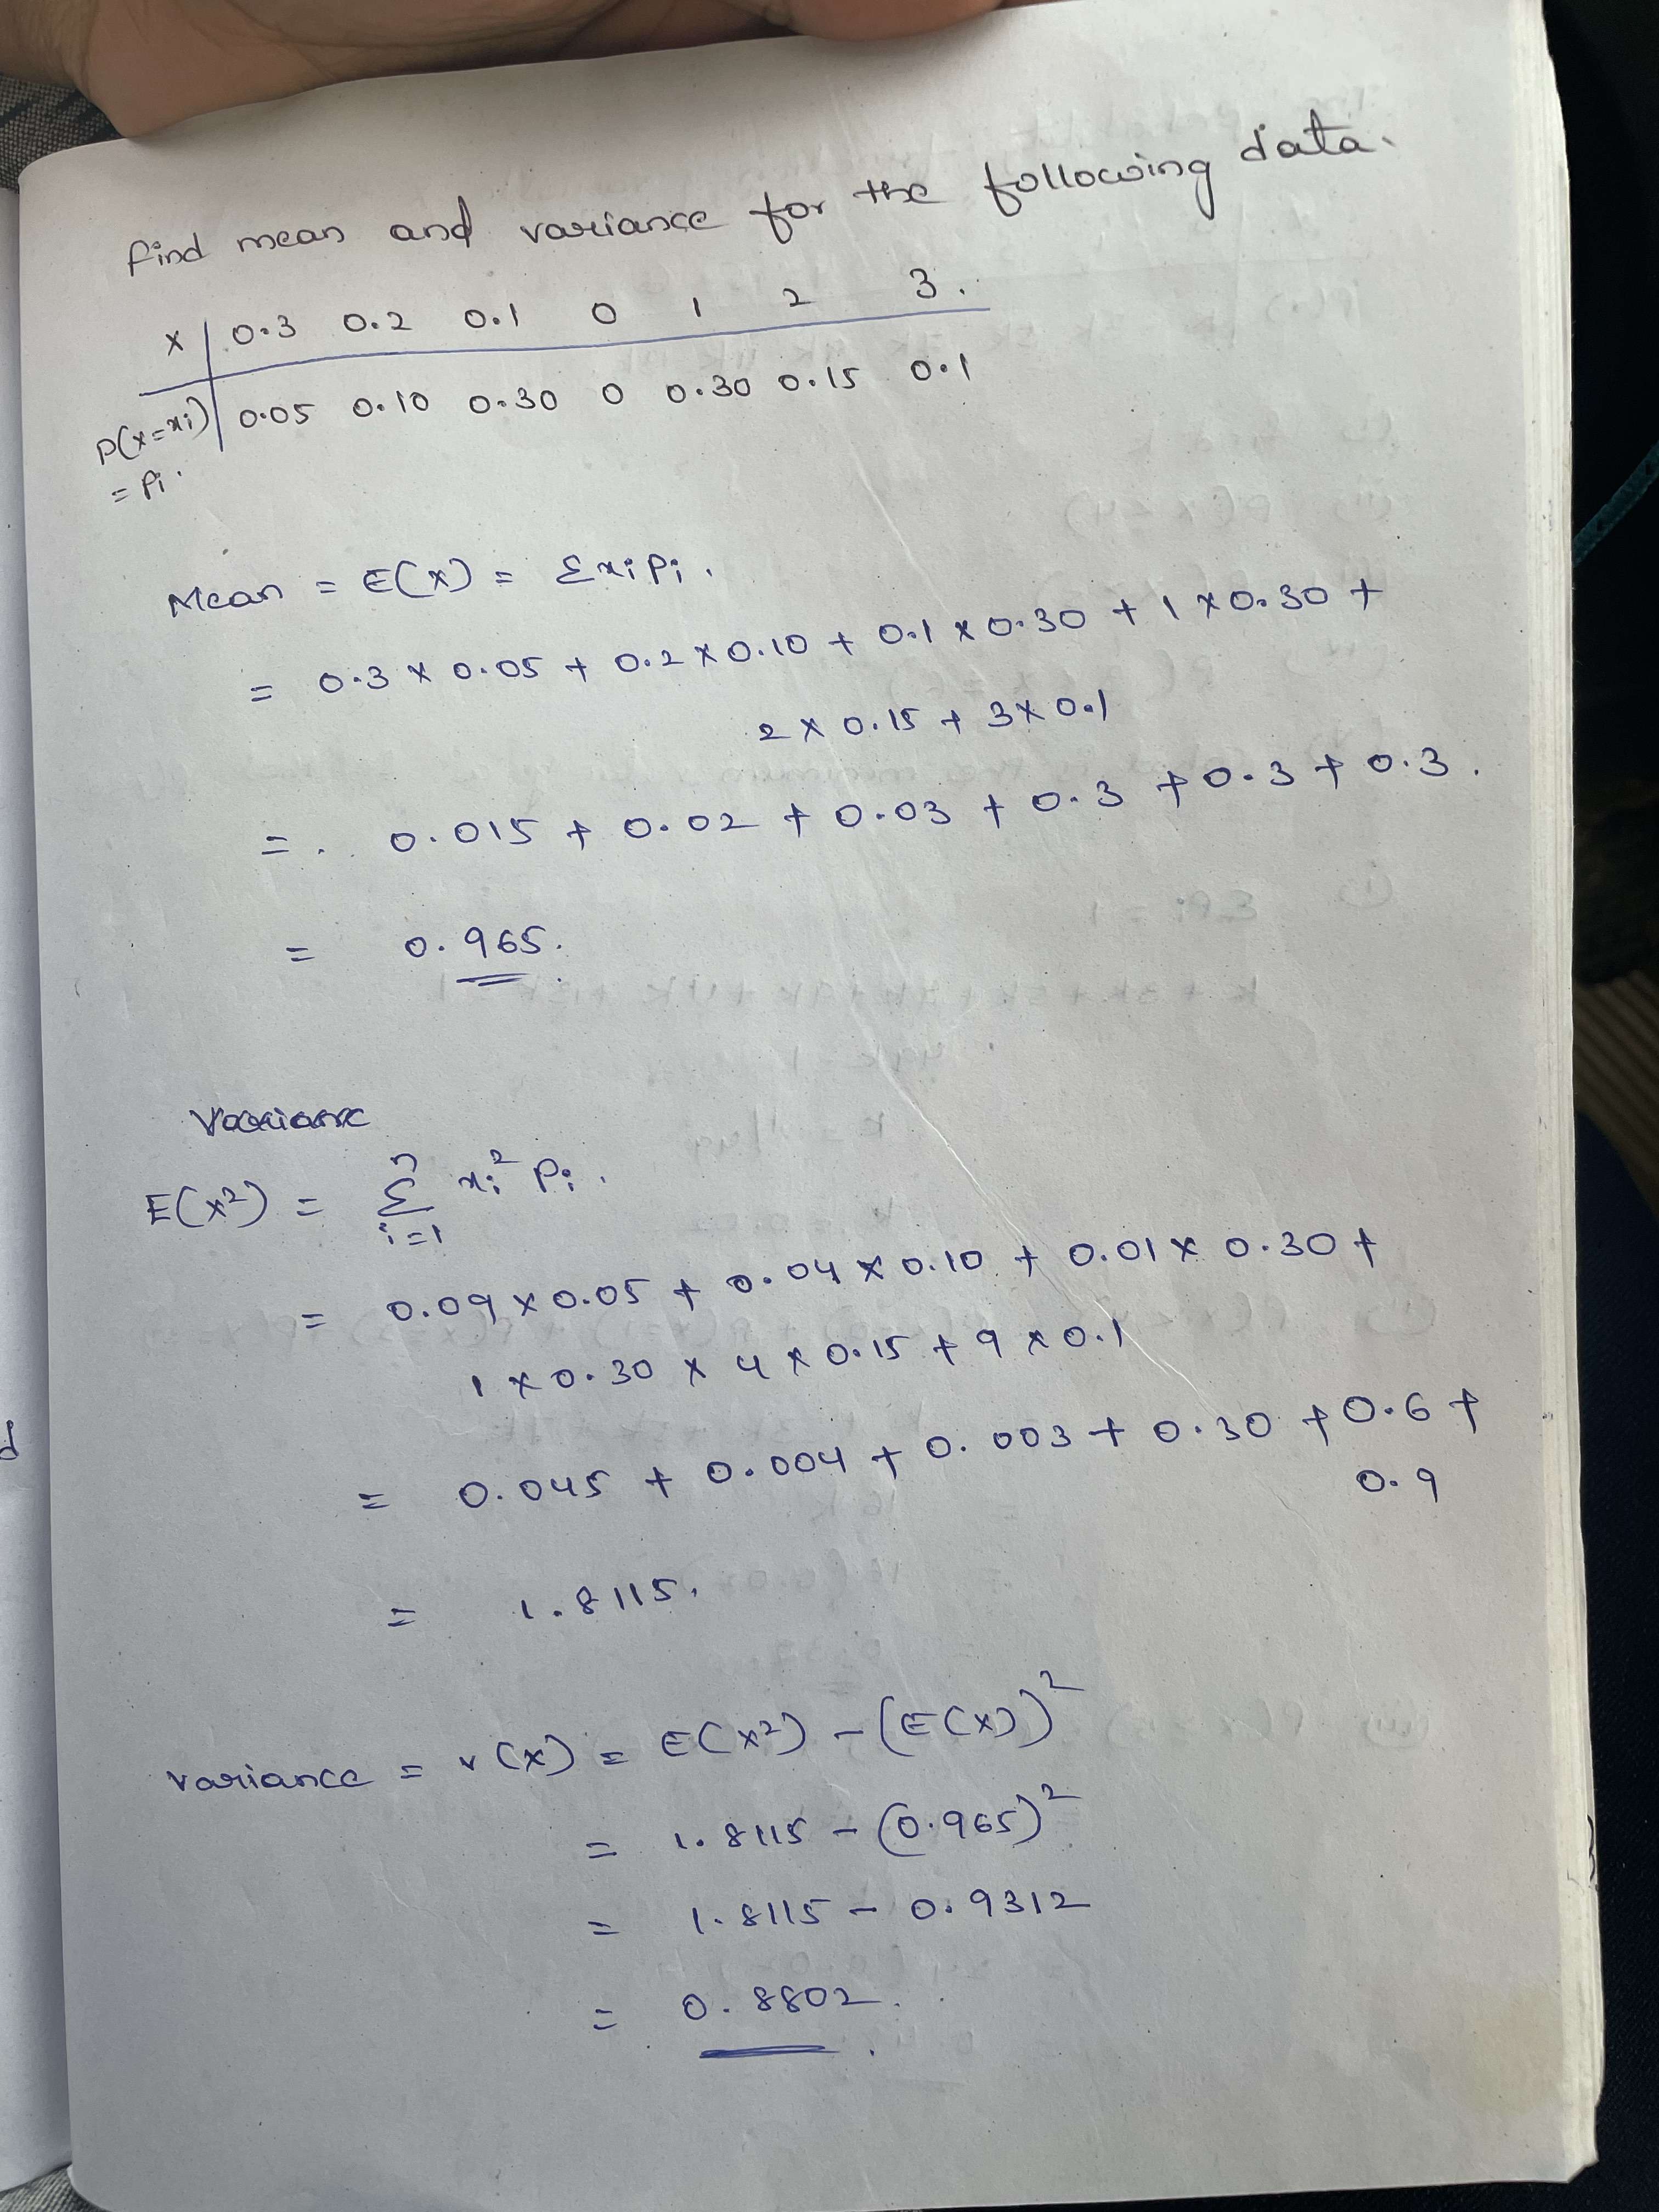 Find mean and variance for the following data.
x 0.3 0.2 0.1 0 1 2 3.
P(x=xi) 0.05 0.10 0.30 0 0.30 0.15 0.1
= Pi.
Mean = E(x) = Σxipi.
= 0.3 × 0.05 + 0.2 × 0.10 + 0.1 × 0.30 + 1 × 0.30 +
2 × 0.15 + 3 × 0.1
= . . 0.015 + 0.02 + 0.03 + 0.3 + 0.3 + 0.3.
= 0.965.
Variance
E(x²) = Σ xi² Pi. (n, i=1)
= 0.09 × 0.05 + 0.04 × 0.10 + 0.01 × 0.30 +
1 × 0.30 × 4 × 0.15 + 9 × 0.1
= 0.045 + 0.004 + 0.003 + 0.30 + 0.6 +
0.9
= 1.8115.
variance = v(x) = E(x²) - (E(x))²
= 1.8115 - (0.965)²
= 1.8115 - 0.9312
= 0.8802.